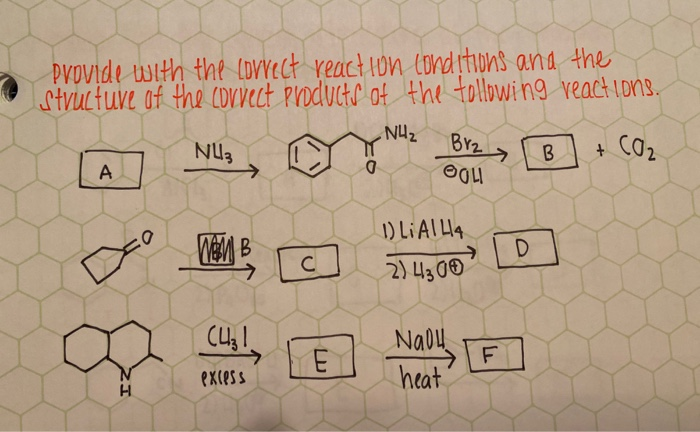 provide with the correct reaction conditions and the
structure of the correct products of the following reactions.
A NH3 NH2 O Br2 ⊖OH B + CO2
O B C 1) LiAlH4 2) H3O⊕ D
N H CH3I excess E NaOH heat F